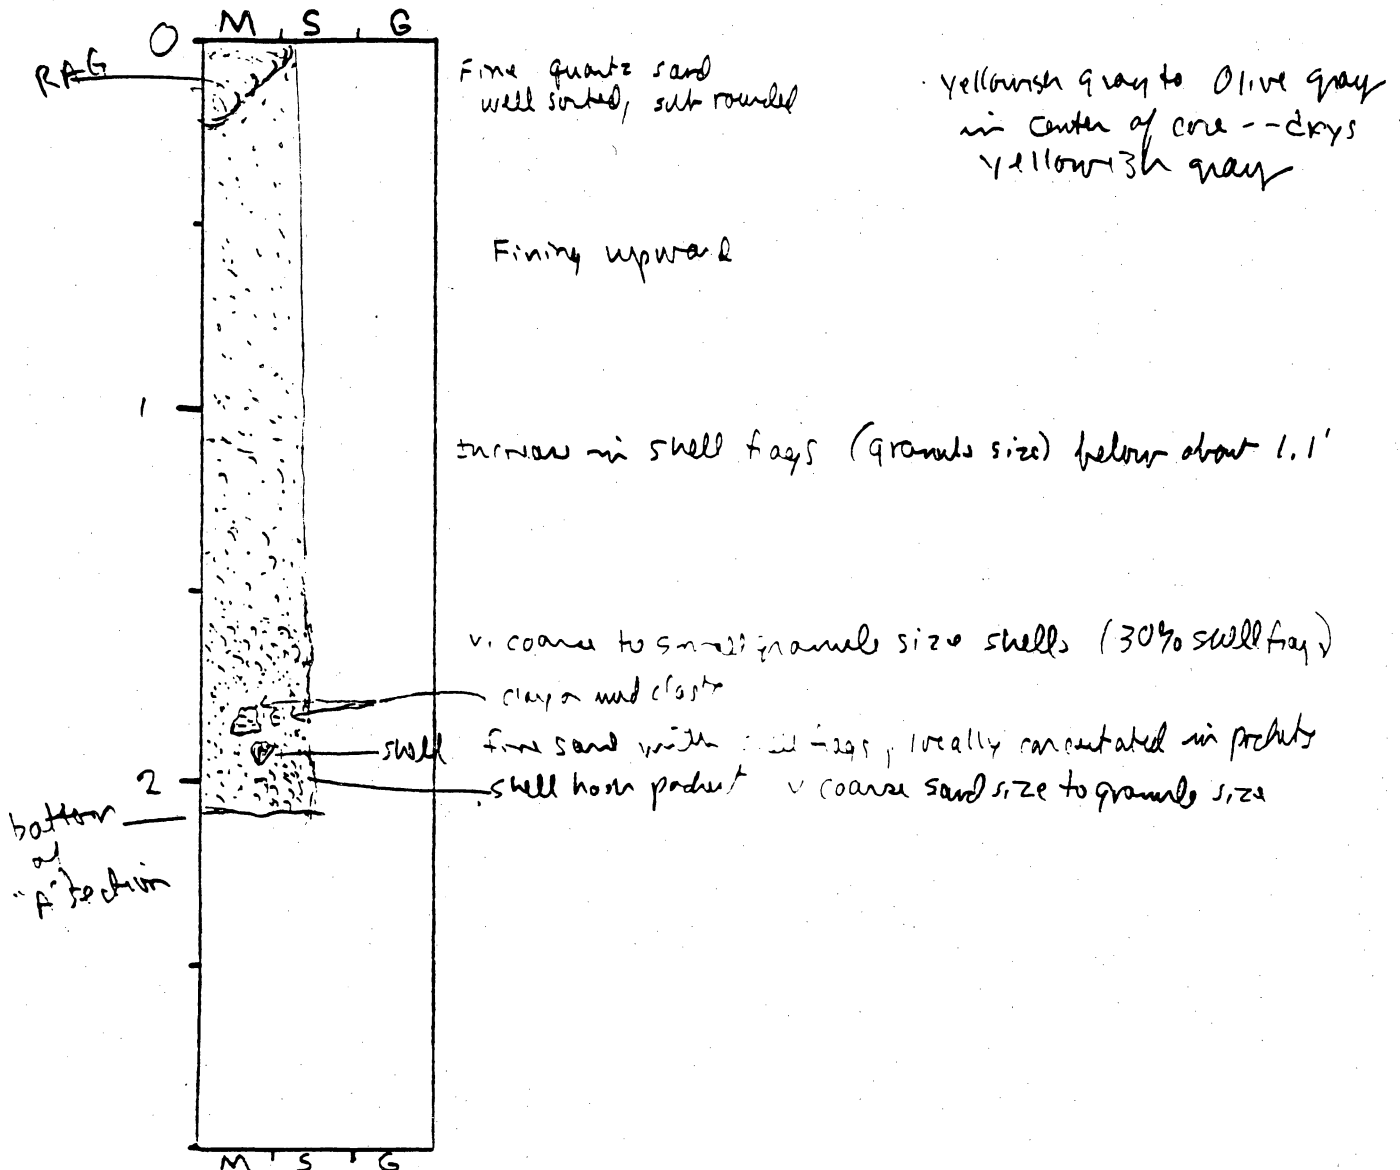 M S G
0
RAG
Fine quartz sand
well sorted, sub rounded
yellowish gray to Olive gray
in center of core -- drys
yellowish gray
Fining upward
1
Increase in shell frags (granule size) below about 1.1'
v. coarse to small granule size shells (30% shell frags)
clay or mud clasts
shell
fine sand with frags, locally concentrated in pockets
2
shell hash pocket v coarse sand size to granule size
bottom
of
"A" section
M S G